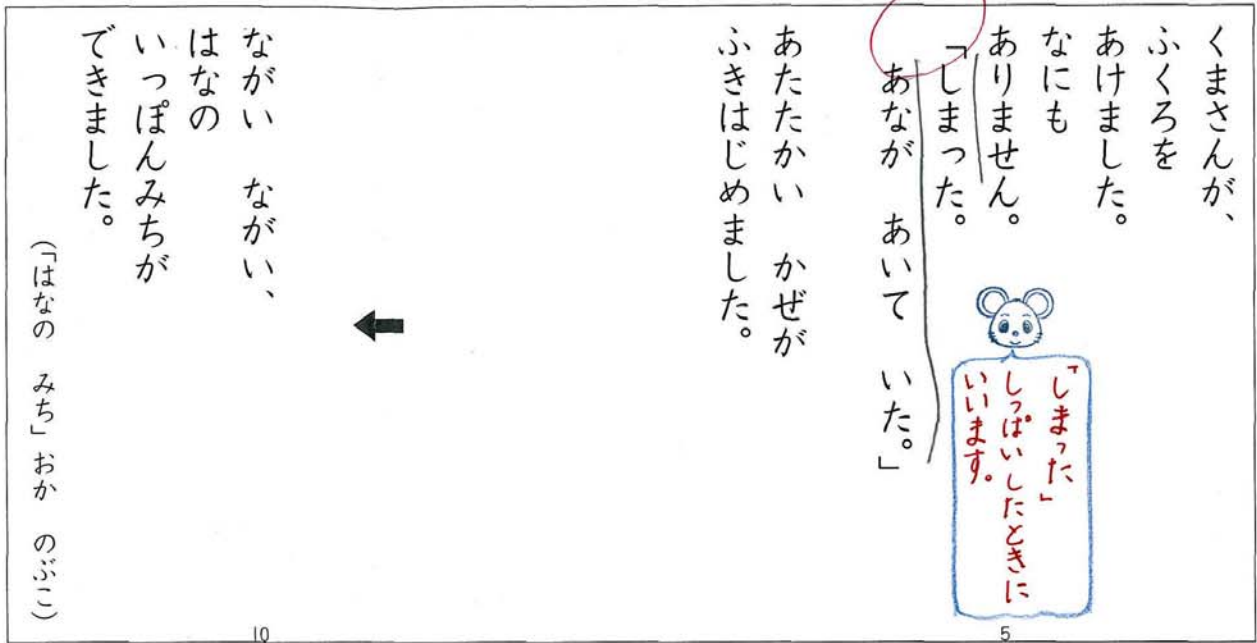 くまさんが、
ふくろを
あけました。
なにも
ありません。
「しまった。
あなが　あいて　いた。」
「しまった」
しっぱいしたときに
いいます。
あたたかい　かぜが
ふきはじめました。
ながい　ながい、
はなの
いっぽんみちが
できました。
(「はなの　みち」おか　のぶこ)
5
10